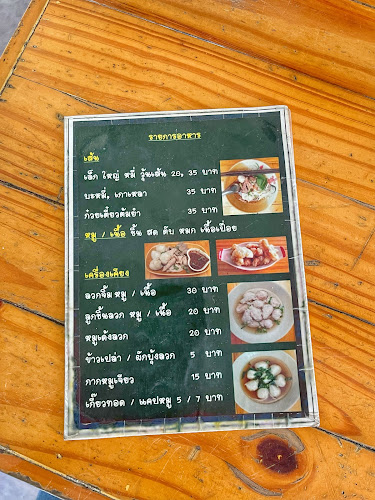 รายการอาหาร
เส้น
เล็ก ใหญ่ หมี่ วุ้นเส้น 25, 35 บาท
บะหมี่, เกาเหลา 35 บาท
ก๋วยเตี๋ยวต้มยำ 35 บาท
หมู / เนื้อ ชิ้น สด ตับ หมก เนื้อเปื่อย
เครื่องเคียง
ลวกจิ้ม หมู / เนื้อ 30 บาท
ลูกชิ้นลวก หมู / เนื้อ 20 บาท
หมูเด้งลวก 20 บาท
ข้าวเปล่า / ผักบุ้งลวก 5 บาท
กากหมูเจียว 15 บาท
เกี๊ยวทอด / แคปหมู 5 / 7 บาท